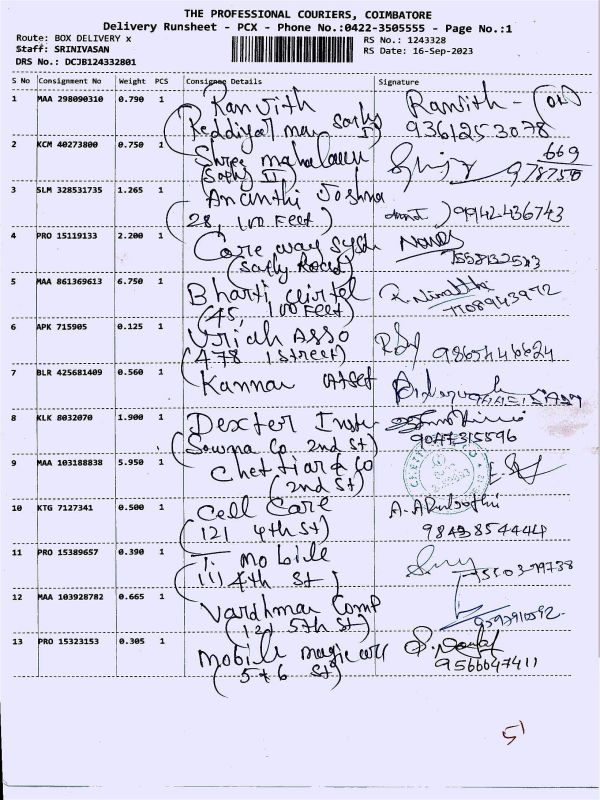 THE PROFESSIONAL COURIERS, COIMBATORE
Delivery Runsheet - PCX - Phone No.:0422-3505555 - Page No.:1
Route: BOX DELIVERY x
RS No.: 1243328
Staff: SRINIVASAN
RS Date: 16-Sep-2023
DRS No.: DCJB124332801
S No Consignment No Weight PCS Consignee Details Signature
1 MAA 298090310 0.790 1 Ranvith Ranvith -
Reddiyal man Sathy 9361253078
2 KCM 40273800 0.750 1 Shree mahalaxmi 669
(Sathy II) 978750
3 SLM 328531735 1.265 1 Ananthi Joshna
(28, 100 Feet) 9942436743
4 PRO 15119133 2.200 1 Care way Syst
(Sathy Road)
5 MAA 861369613 6.750 1 Bharti Airtel R. Nivaththi
(45, 100 Feet) 7708943972
6 APK 715905 0.125 1 Uriah Asso
(478 1 street) 9865446624
7 BLR 425681409 0.560 1 Kannan
8 KLK 8032070 1.900 1 Dexter Instu
(Sowma Co 2nd St) 9047315596
9 MAA 103188838 5.950 1 Chettiar & Co
(2nd St)
10 KTG 7127341 0.500 1 Cell Care
(121 4th St) 9843854444
11 PRO 15389657 0.390 1 Ti Mobile
(111 4th St)
12 MAA 103928782 0.665 1 Vardhman Comp
(121 5th St)
13 PRO 15323153 0.305 1 Mobile magic
(576 St) 9566047411
51